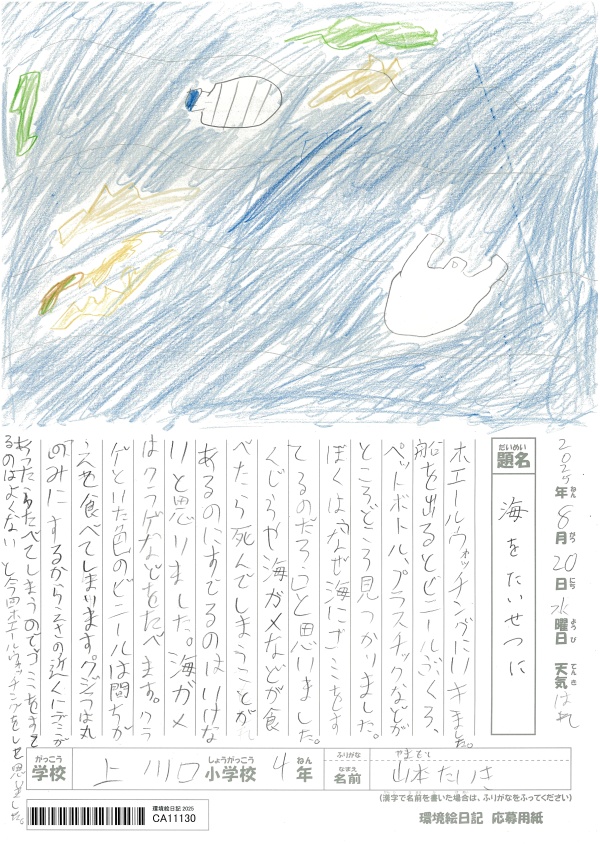 2025年8月20日水曜日 天気はれ
ねん がつ にち ようび てんき
だいめい
題名
海をたいせつに
ホエールウォッチングにいキました。
船を出るとビニールぶくろ、
ペットボトル、プラスチックなどが
ところどころ見つかりました。
ぼくはなぜ海にごミをす
てるのだろうと思いました。
くじらや海ガメなどが食
べたら死んでしまうことが
あるのにすてるのはいけな
いと思いました。海ガメ
はクラゲなどをたべます。クラ
ゲとにた色のビニールは間ちが
えを食べてしまいます。クジラは丸
のみにするからえさの近くにゴミが
あったらたべてしまうのでゴミをすて
るのはよくないと今回ホエールウォッチングをして思いました。
がっこう しょうがっこう ねん
学校 上川口小学校 4年
ふりがな やまもと
なまえ
名前 山本たいき
(漢字で名前を書いた場合は、ふりがなをふってください)
環境絵日記 2025
CA11130
環境絵日記 応募用紙